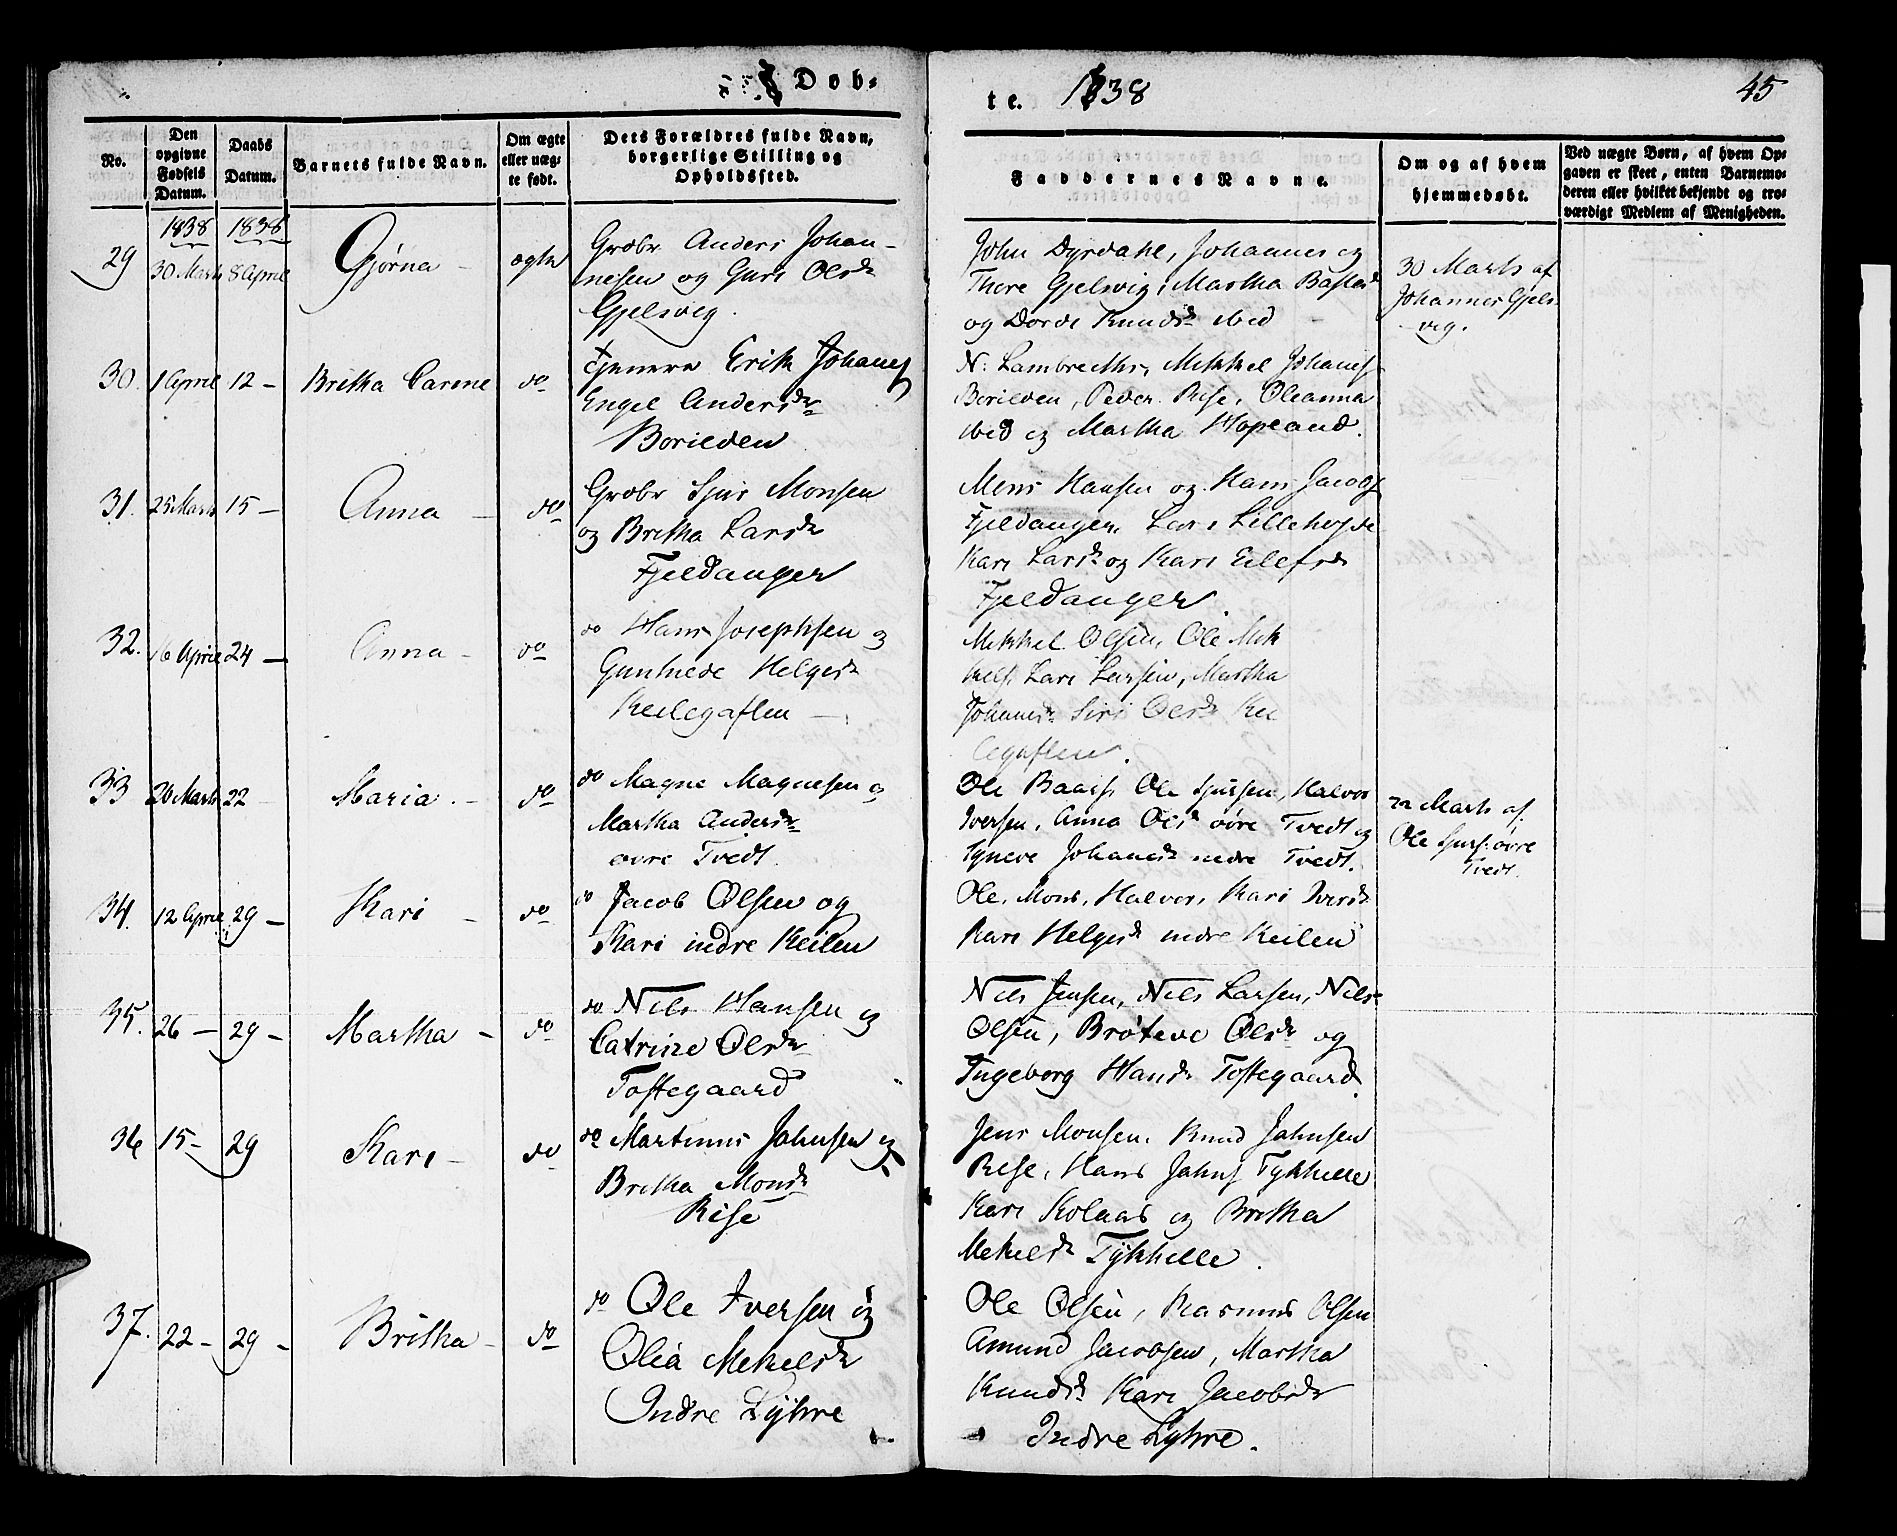 Døb-
te. 1838
45
No.
Den opgivne Fødsels Datum.
Daabs Datum.
Barnets fulde Navn.
Om ægte eller uæg-te født.
Dets Forældres fulde Navn, borgerlige Stilling og Opholdssted.
Faddernes Navne.
Om og af hvem hjemmedøbt.
Ved uægte Børn, af hvem Op-
gaven er skeet, enten Barnemo-
deren eller hvilket bekjendt og tro-
værdigt Medlem af Menigheden.
1838 1838
29 30 Marts 8 April Gjørna - ægte
Grdbr Anders Johan-
nesen og Guri Olsdr
Gjelsvig.
John Dyrdahl, Johannes og
Thore Gjelsvig, Martha
og Dorde Knudsdr ibid -
30 Marts af
Johannes Gjels-
vig.
30. 1 April 12 - Britha Carine do
Tjenere Erik Johans
Engel Andersdr
Borilden
N: Lambrechts, Mikkel Johans
Borilden, Peder Rise, Oleanna
ibid og Martha Hopland.
31. 25 Marts 15 - Anna - do
Grdbr Sjur Monsen
og Britha Larsdr
Fjeldanger
Mons Hansen og Hans Jacobs
Fjeldanger, Lars Lillehøjde
Kari Larsdr og Kari Eilefsdr
Fjeldanger.
32. 16 April 24 - Anna - do
do Hans Josephsen og
Gunhilde Helgesdr
Keilegaflen -
Mikkel Olsen, Ole Mik
kels. Lars Larsen, Martha
Johansdr Siri Olsdr Kei
legaflen.
33 20 Marts 22 Maria. - do
do Magne Magnesen og
Martha Andersdr
øvre Tvedt
Ole Baars. Ole Sjursen, Halvor
Iversen, Anna Olsdr øvre Tvedt og
Synneve Johansdr nedre Tvedt.
22 Marts af
Ole Sjurs. øvre
Tvedt.
34. 12 April 29 - Kari - do
do Jacob Olsen og
Kari indre Keilen
Ole, Mons, Halvor, Kari Iversdr
Kari Helgesdr indre Keilen
35. 26 - 29 - Martha - do
do Nils Hansen og
Catrine Olsdr
Toftegaard
Nils Jensen, Nils Larsen, Nils
Olsen, Brøteve Olsdr og
Ingeborg Hansdr Toftegaard.
36 15 - 29 Kari - do
do Martinus Johnsen og
Britha Monsdr
Rise
Jens Monsen. Knud Johnsen
Rise, Hans Johns Tykhelle
Kari Kolaas og Britha
Mekelsdr Tykhelle.
37. 22 - 29 - Britha - do
do Ole Iversen og
Olia Mekelsdr
Indre Lyhre
Ole Olsen, Rasmus Olsen
Amund Jacobsen, Martha
Knudsdr Kari Jacobsdr
Indre Lyhre.